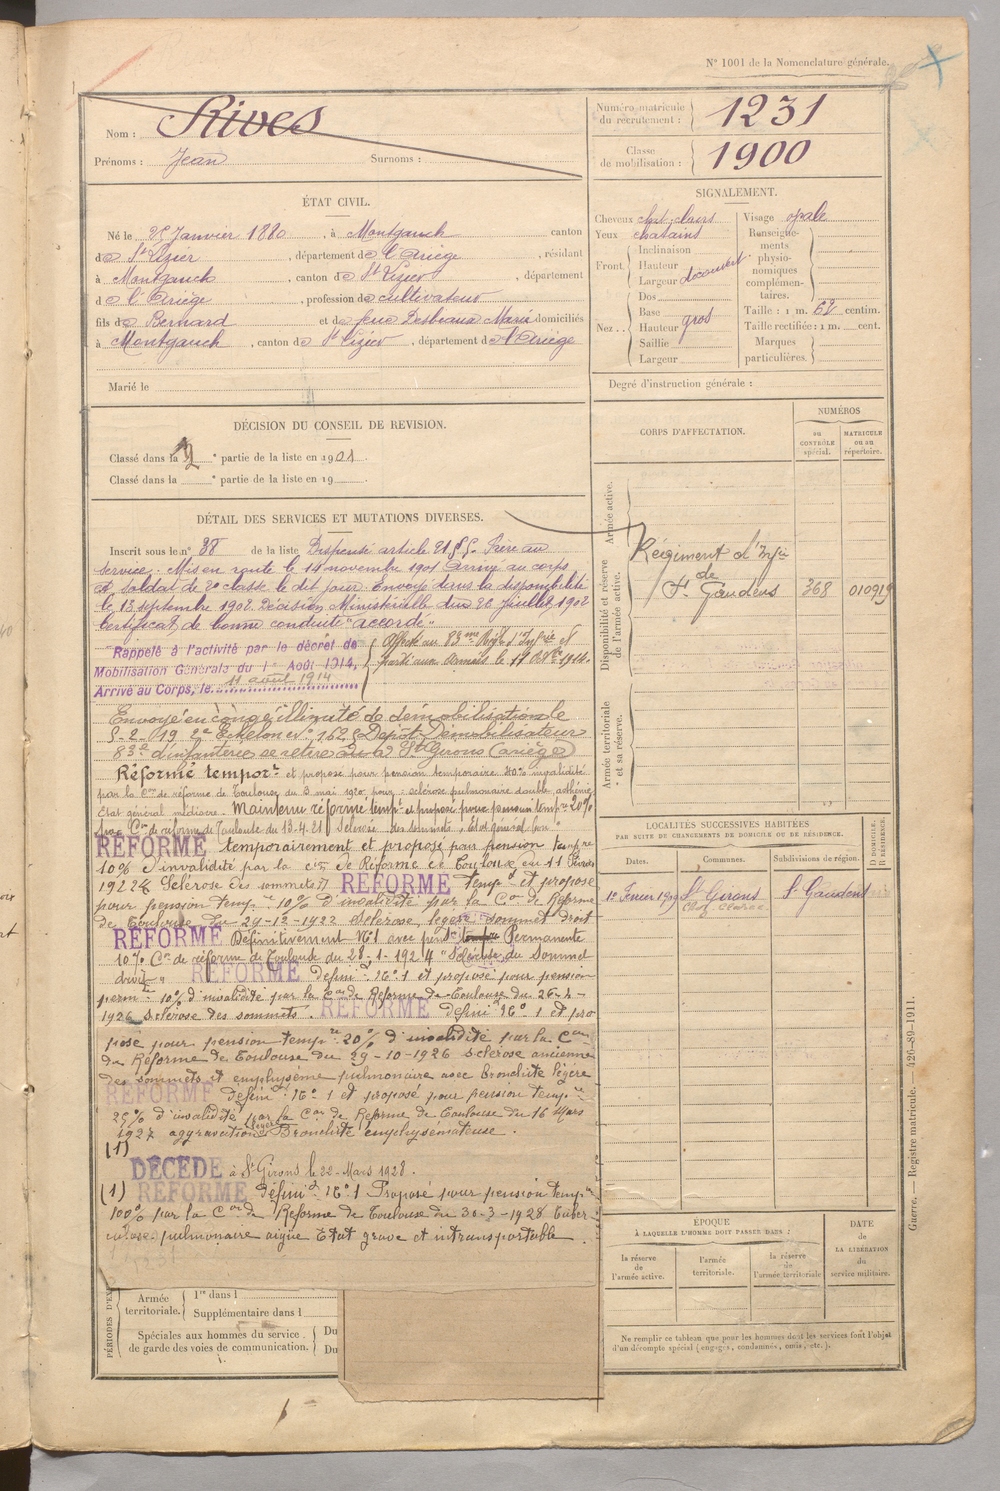 N° 1001 de la Nomenclature générale.
Nom : Rives
Prénoms : Jean Surnoms :
Numéro matricule du recrutement : 1231
Classe de mobilisation : 1900
ÉTAT CIVIL.
Né le 25 Janvier 1880, à Montgauch canton
de St Lizier, département de l'Ariège, résidant
à Montgauch, canton de St Lizier, département
de l'Ariège, profession de cultivateur
fils de Bernard et de feue Desbeaux Marie domiciliés
à Montgauch, canton de St Lizier, département de l'Ariège
Marié le
SIGNALEMENT.
Cheveux chat. clairs
Yeux chatains
Front Inclinaison
Hauteur
Largeur découvert
Nez.. Dos
Base
Hauteur gros
Saillie
Largeur
Visage ovale
Renseignements physionomiques complémentaires.
Taille : 1 m. 62 centim.
Taille rectifiée : 1 m. cent.
Marques particulières.
Degré d'instruction générale :
DÉCISION DU CONSEIL DE REVISION.
Classé dans la 2e partie de la liste en 1901.
Classé dans la e partie de la liste en 19 .
CORPS D'AFFECTATION.
NUMÉROS
au CONTRÔLE spécial.
MATRICULE ou au répertoire.
Armée active.
Disponibilité et réserve de l'armée active.
Régiment d'Infie
de
St Gaudens 368 010919
Armée territoriale et sa réserve.
DÉTAIL DES SERVICES ET MUTATIONS DIVERSES.
Inscrit sous le n° 38 de la liste Dispensé article 21 § 5. Frère au
service. Mis en route le 14 novembre 1901 Arrivé au corps
et soldat de 2e classe le dit jour. Envoyé dans la disponibilité
le 13 septembre 1902. Décision Ministérielle du 26 Juillet 1902
Certificat de bonne conduite "accordé"
Rappelé à l'activité par le décret de
Mobilisation Générale du 1er Août 1914,
Arrivé au Corps, le 11 août 1914
Affecté au 83me Régt d'Infrie et
parti aux Armées le 17 1914.
Envoyé en congé illimité de démobilisation le
5-2-1919 2e Echelon N° 162 Dépôt Démobilisateur
83e d'infanterie se retire à St Girons (Ariège)
Réformé temport et proposé pour pension temporaire 40% invalidité
par la Con de réforme de Toulouse du 3 mai 1920 pour : sclérose pulmonaire double, asthénie
Etat général médiocre. Maintenu réformé tempt et proposé pour pension tempre 20%
par Con de réforme de Toulouse du 13.4.21 Sclérose des sommets, Etat général bon
RÉFORMÉ temporairement et proposé pour pension tempre
10% d'invalidité par la Con de Réforme de Toulouse du 11 Février
1922 "Sclérose des sommets" RÉFORMÉ tempt et proposé
pour pension tempre 10% d'invalidité par la Con de Réforme
de Toulouse du 29-12-1922 Sclérose légère sommet droit
RÉFORMÉ Définitivement N°1 avec pension Permanente
10% Con de réforme de Toulouse du 28-1-1924 "Sclérose du Sommet
droit" RÉFORMÉ définit N°1 et proposé pour pension
permte 10% d'invalidité par la Con de Réforme de Toulouse du 26-4-
1926 Sclérose des sommets. RÉFORMÉ définit N° 1 et pro
posé pour pension tempre 20% d'invalidité par la Con
de Réforme de Toulouse du 29-10-1926 Sclérose ancienne
des sommets et emphysème pulmonaire avec bronchite légère
RÉFORMÉ définit N° 1 et proposé pour pension tempre
25% d'invalidité par la Con de Réforme de Toulouse du 16 Mars
1927 aggravation légère Bronchite emphysémateuse.
(1)
DÉCÉDÉ à St Girons le 22-Mars 1928.
(1) RÉFORMÉ définit N°1 Proposé pour pension tempre
100% par la Con de Réforme de Toulouse du 30-3-1928 Tuber-
culose pulmonaire aigüe Etat grave et intransportable
LOCALITÉS SUCCESSIVES HABITÉES
PAR SUITE DE CHANGEMENTS DE DOMICILE OU DE RÉSIDENCE.
Dates. Communes. Subdivisions de région. D. DOMICILE. R. RÉSIDENCE.
10 Février 1919 St Girons St Gaudens
ÉPOQUE
À LAQUELLE L'HOMME DOIT PASSER DANS :
la réserve de l'armée active.
l'armée territoriale.
la réserve de l'armée territoriale
DATE de LA LIBÉRATION du service militaire.
Ne remplir ce tableau que pour les hommes dont les services font l'objet
d'un décompte spécial (engagés, condamnés, omis, etc.).
PÉRIODES D'EX
Armée territoriale. 1re dans l
Supplémentaire dans l
Spéciales aux hommes du service de garde des voies de communication. Du
Du
Guerre. — Registre matricule. — 426-89-1911.